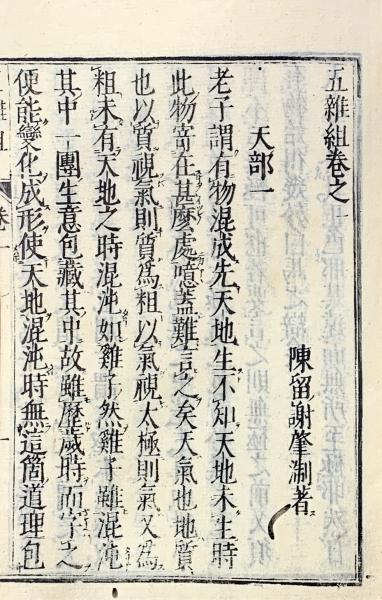 五雜組卷之一
陳留謝肇淛著
天部一
老子謂有物混成先天地生不知天地未生時
此物寄在甚麼處噫蓋難言之矣天氣也地質
也以質視氣則質爲粗以氣視太極則氣又爲
粗未有天地之時混沌如雞子然雞子雖混沌
其中一團生意包藏其中故雖歷歲時而字之
便能變化成形使天地混沌時無這箇道理包